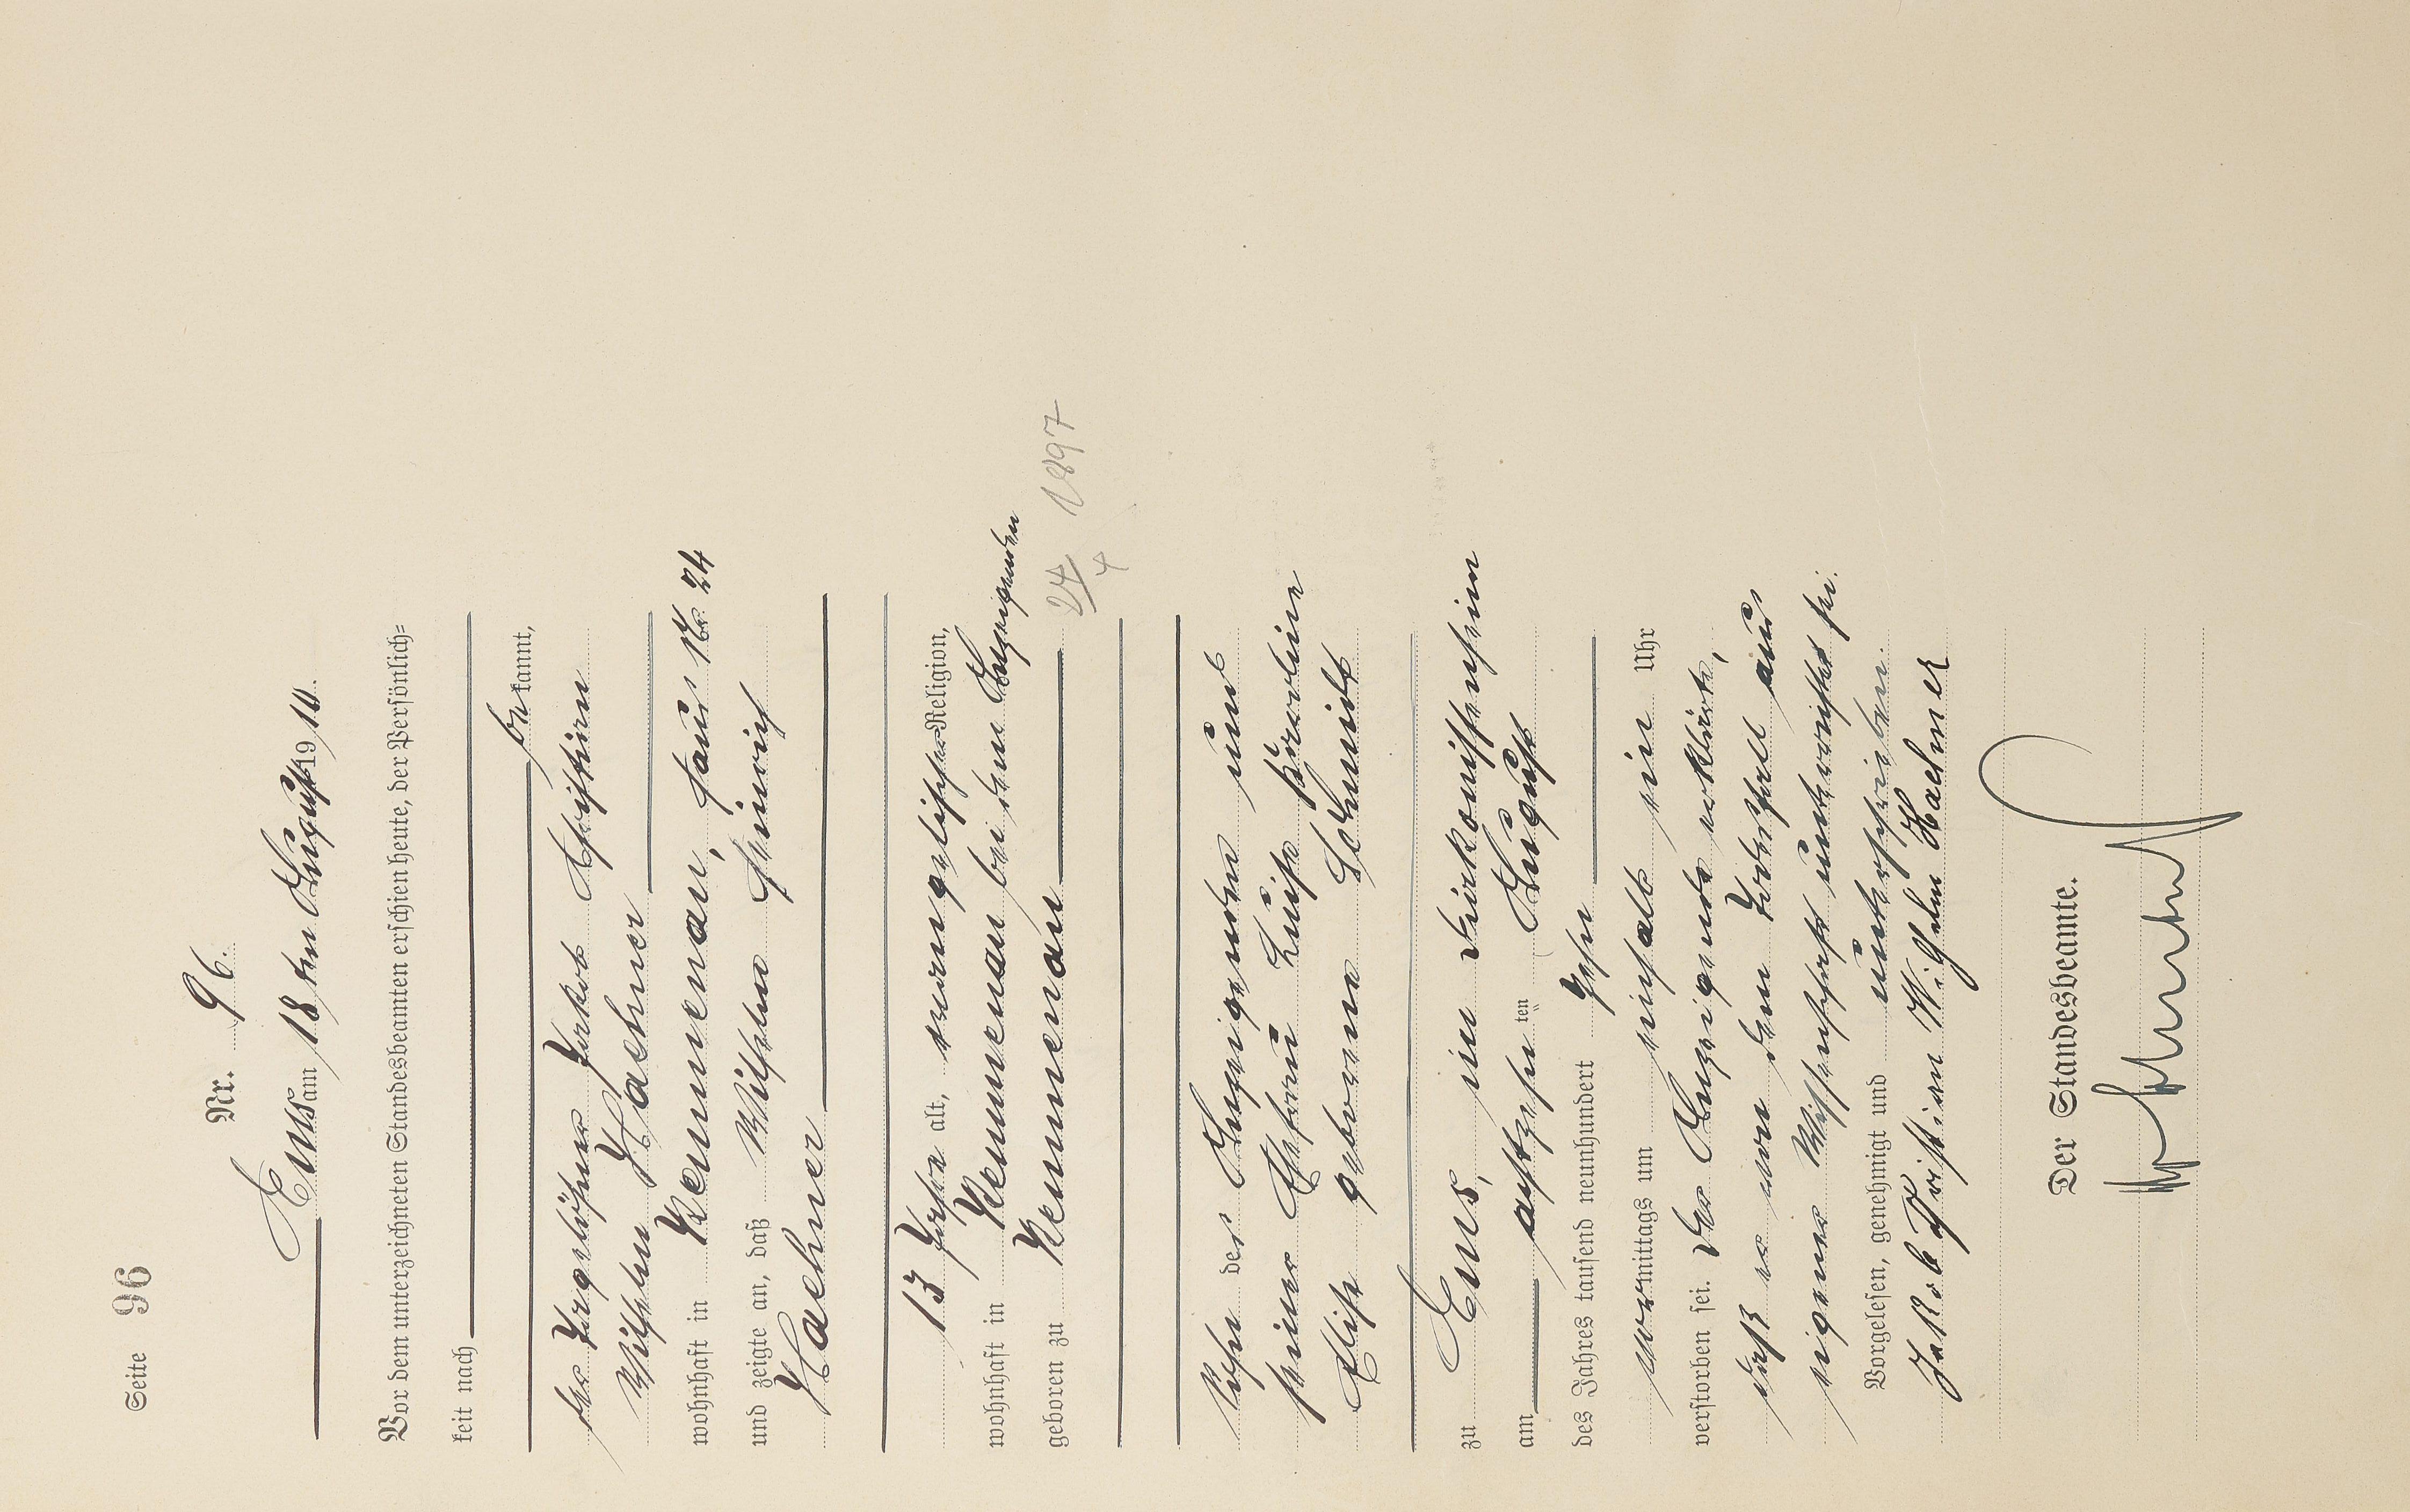 Seite 96
Nr. 96.
Ems am 18ten August 1910.
Vor dem unterzeichneten Standesbeamten erschien heute, der Persönlich=
keit nach
be kannt,
der Tagelöhner Jakob Christian
Wilhelm Haehner
wohnhaft in Kemmenau, Haus Nr. 24
und zeigte an, daß Wilhelm Heinrich
Haehner
13 Jahre alt, evangelischer Religion,
wohnhaft in Kemmenau bei dem Anzeigenden
geboren zu Kemmenau
24/4 1897
Sohn des Anzeigenden und
seiner Ehefrau Luise Karoline
Elise geborene Schmidt
zu Ems, im Diakonissenheim
am achtzehn ten August
des Jahres tausend neunhundert zehn
vormittags um einhalb ein Uhr
verstorben sei. Der Anzeigende erklärte,
daß er von dem Todesfall aus
eigener Wissenschaft unterrichtet sei.
Vorgelesen, genehmigt und unterschrieben.
Jakob Christian Wilhelm Haehner
Der Standesbeamte.